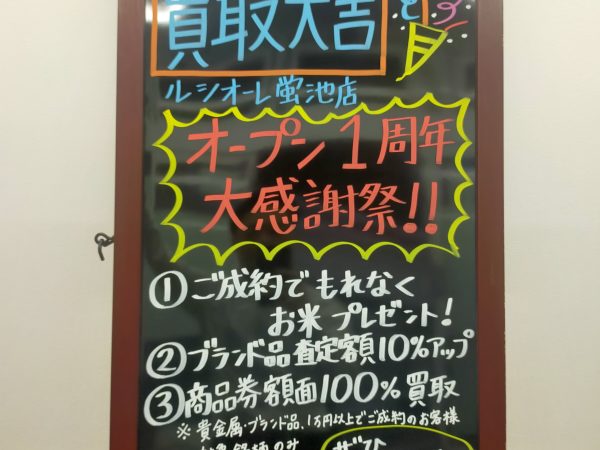 買取大吉
ルシオーレ蛍池店
オープン1周年
大感謝祭!!
①ご成約でもれなく
お米プレゼント!
②ブランド品査定額10%アップ
③商品券額面100%買取
※貴金属・ブランド品、1万円以上でご成約のお客様
のみ
ぜひ